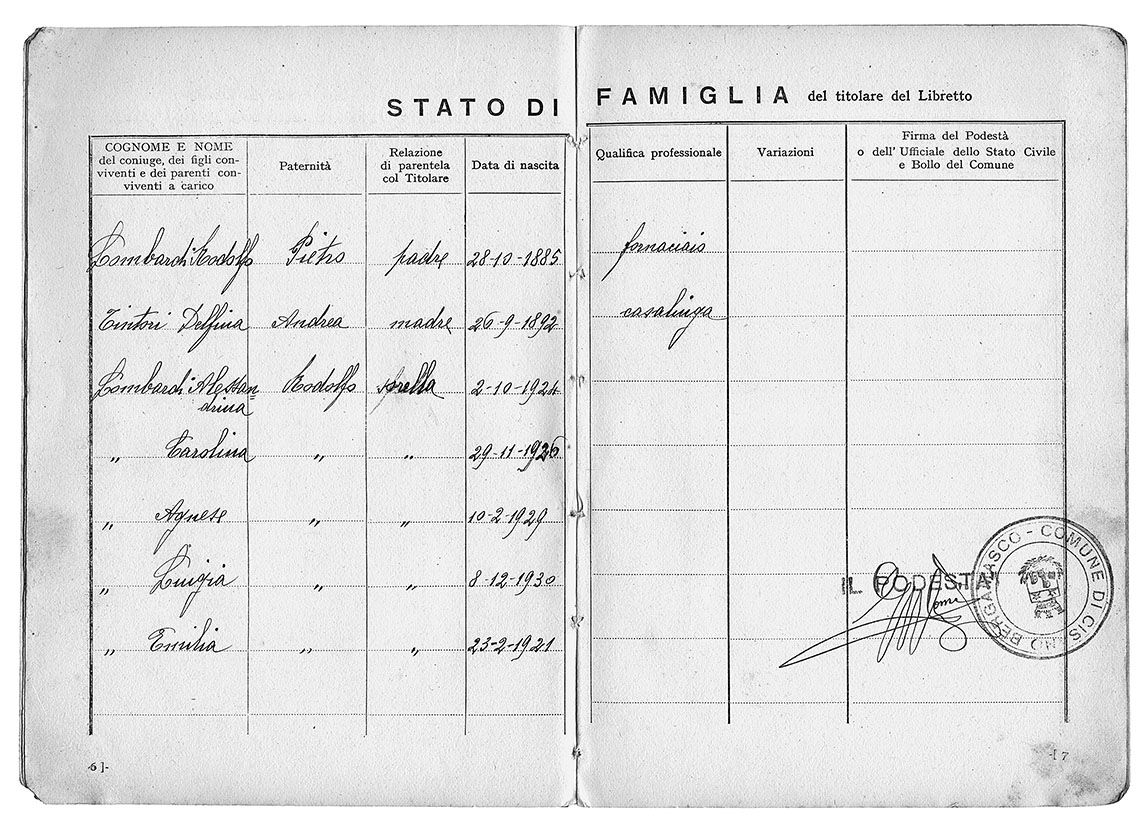 STATO DI FAMIGLIA del titolare del Libretto
COGNOME E NOME
del coniuge, dei figli con-
viventi e dei parenti con-
viventi a carico
Paternità
Relazione
di parentela
col Titolare
Data di nascita
Qualifica professionale
Variazioni
Firma del Podestà
o dell' Ufficiale dello Stato Civile
e Bollo del Comune
Lombardi Rodolfo Pietro padre 28-10-1885 fornaciaio
Tintori Delfina Andrea madre 26-9-1892 casalinga
Lombardi Alessan= Rodolfo sorella 2-10-1924
drina
„ Carolina „ „ 29-11-1926
„ Agnese „ „ 10-2-1929
„ Luigia „ „ 8-12-1930
„ Emilia „ „ 23-2-1921
IL PODESTÀ
COMUNE DI CISANO BERGAMASCO
-[6]-
-[7